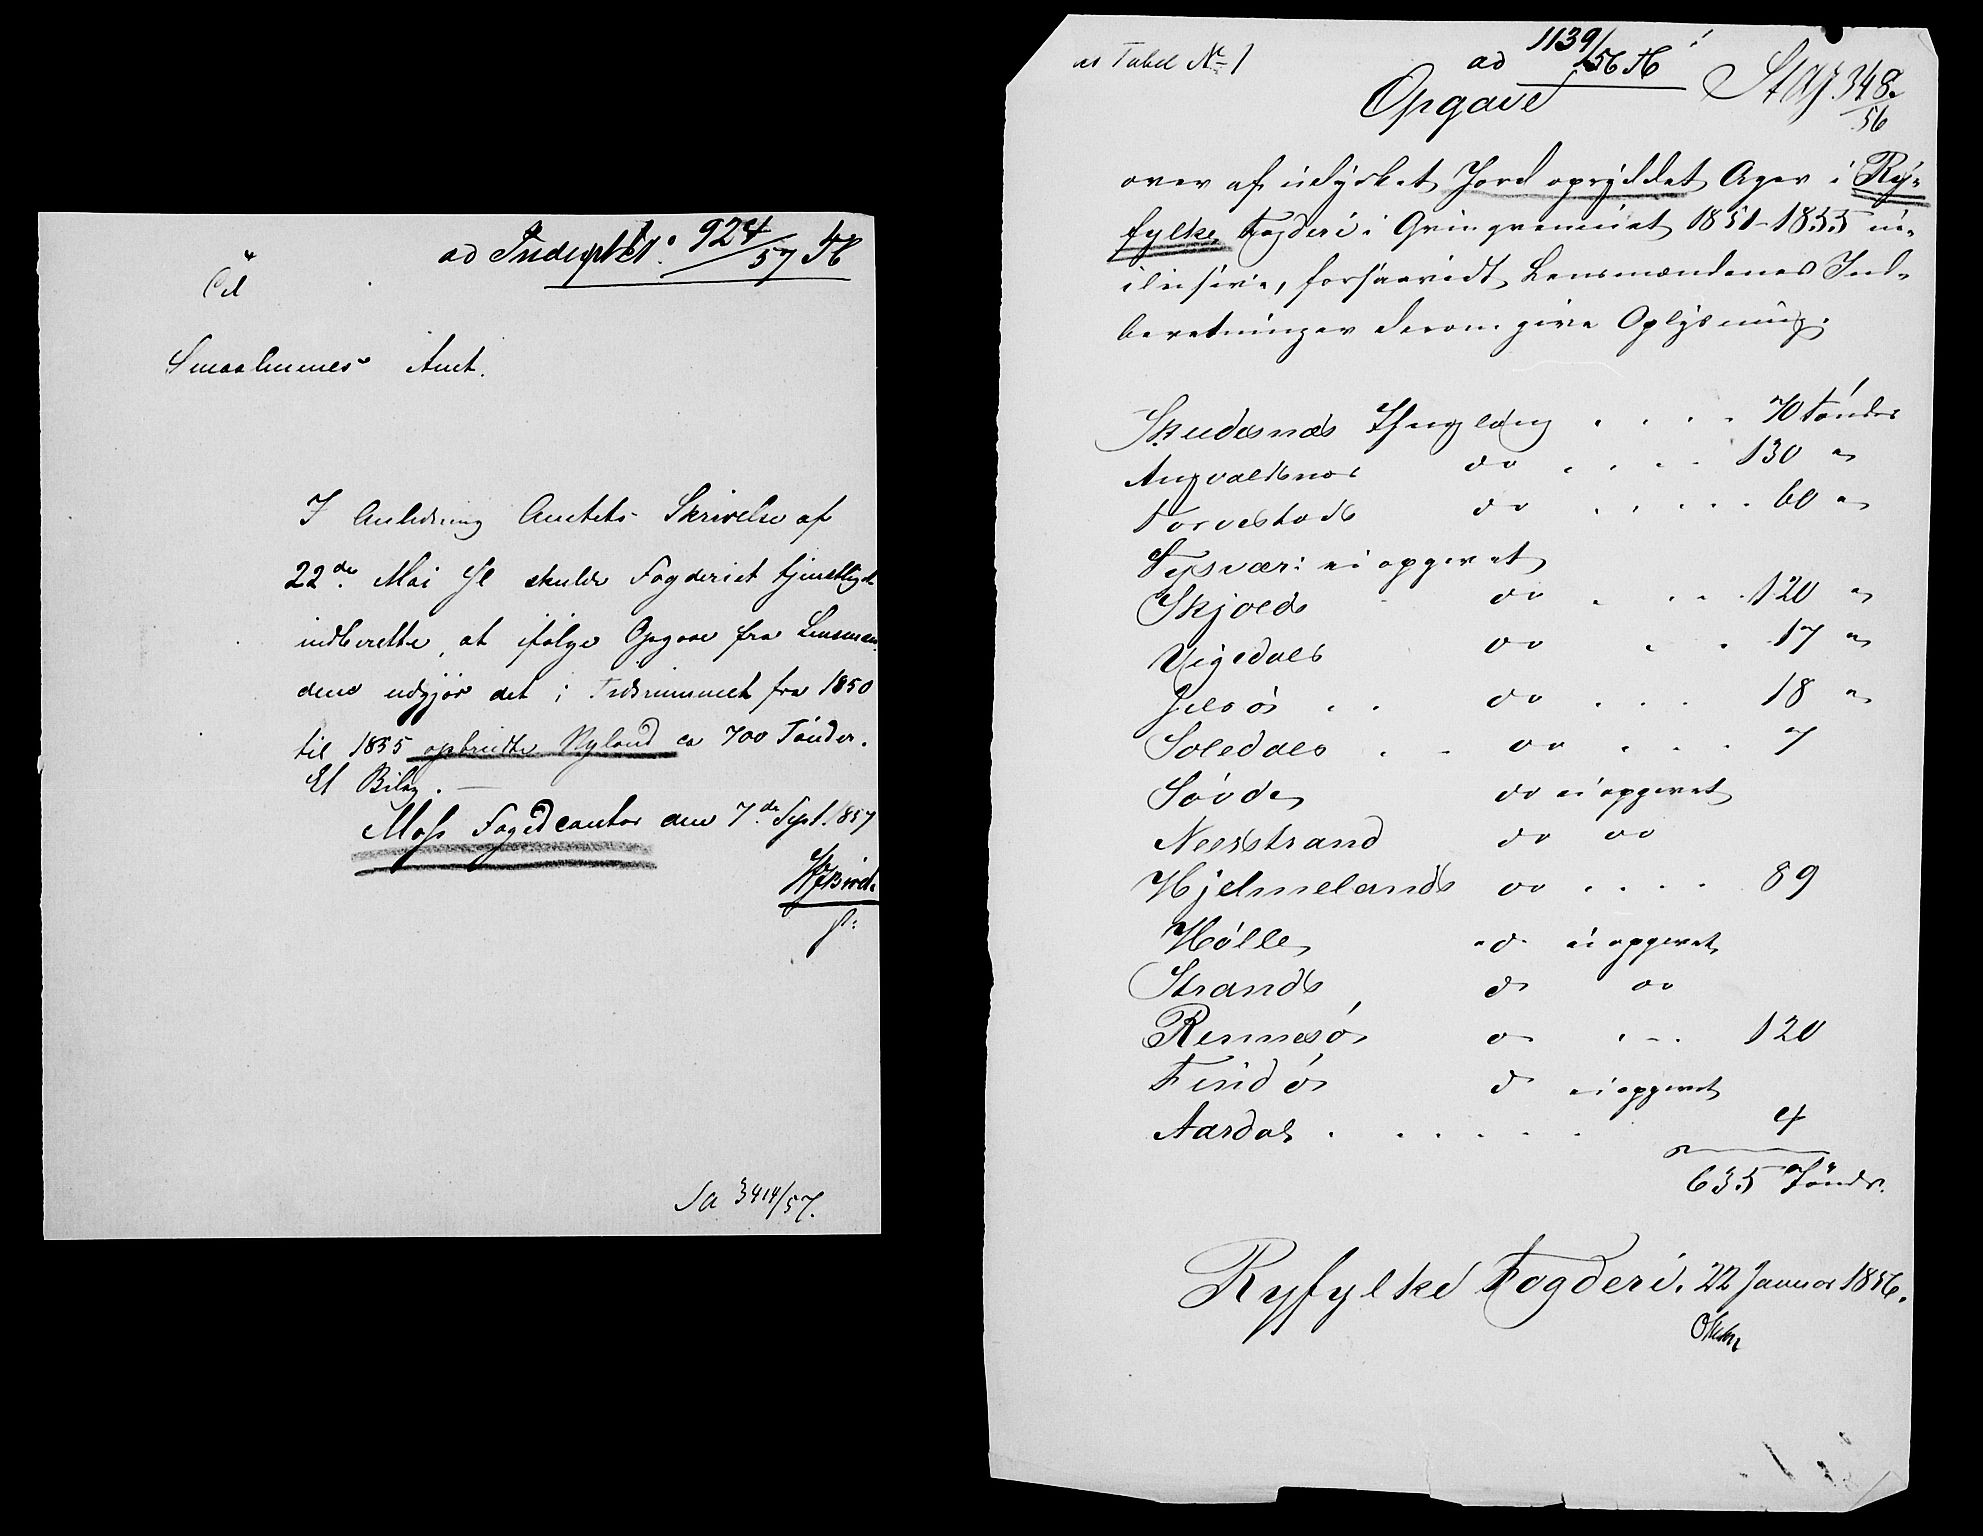 ad Indept: 924/57 H
Til
Smaalenenes Amt.
I Anledning Amtets Skrivelse af
22de Mai f.A. skulde Fogderiet tjenstligst
indberette, at ifølge Opgave fra Lensmæn-
dene udgjør det i Tidsrummet fra 1850
til 1855 opbrudte Nyland ca 700 Tønder.
Et Bilag.
Moss Fogedcontor den 7de Sept. 1857
Ja 3414/57.
ad Tabel No 1
ad 1139/56 H
348/56
Opgave
over af udyrket Jord opryddet Ager i Ry-
fylke Fogderi i Qvinqvenniet 1851-1855 in-
clusive, forsaavidt Lensmændenes Ind-
beretninger derom give Oplysning.
Skudesnæs Thinglaug . . . . 70 Tønder
Augvaldsnæs do . . . . 130 "
Torvestads do . . . . . 60 "
Tysvær: ei opgivet
Skjolds do . . . . 120 "
Vigedals do . . 17 "
Jelsø . . do . . . 18 "
Soledals . . do . . . 7
Søvde do ei opgivet
Nerstrand do do
Hjelmelands do . . . . 89
Hølle do ei opgivet
Strands do do
Rennesø do . . . 120
Findø do ei opgivet
Aardal . . . . . . 4
635 Tønder
Ryfylke Fogderi, 22 Januar 1856.